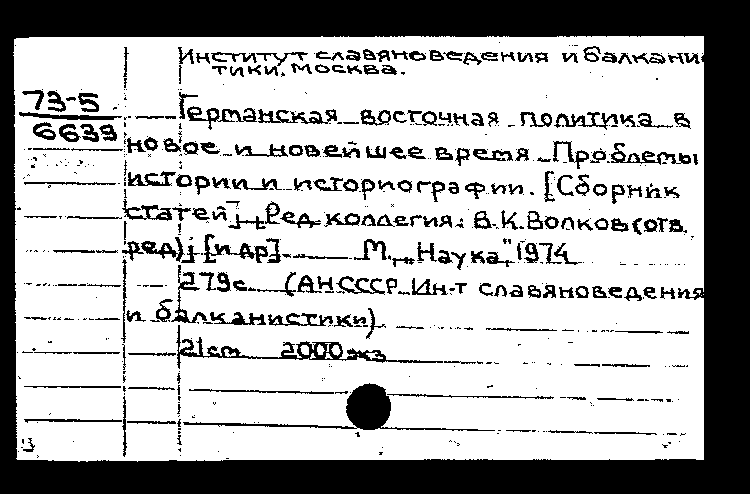 Институт славяноведения и балкани
тики. Москва.
73-5
6639
Германская восточная политика в
новое и новейшее время. Проблемы
истории и историографии. [Сборник
статей]. Ред. коллегия: В.К. Волков (отв.
ред) [и др] М., „Наука", 1974
279с. (АН СССР. Ин-т славяноведения
и балканистики)
21cm 2000 экз